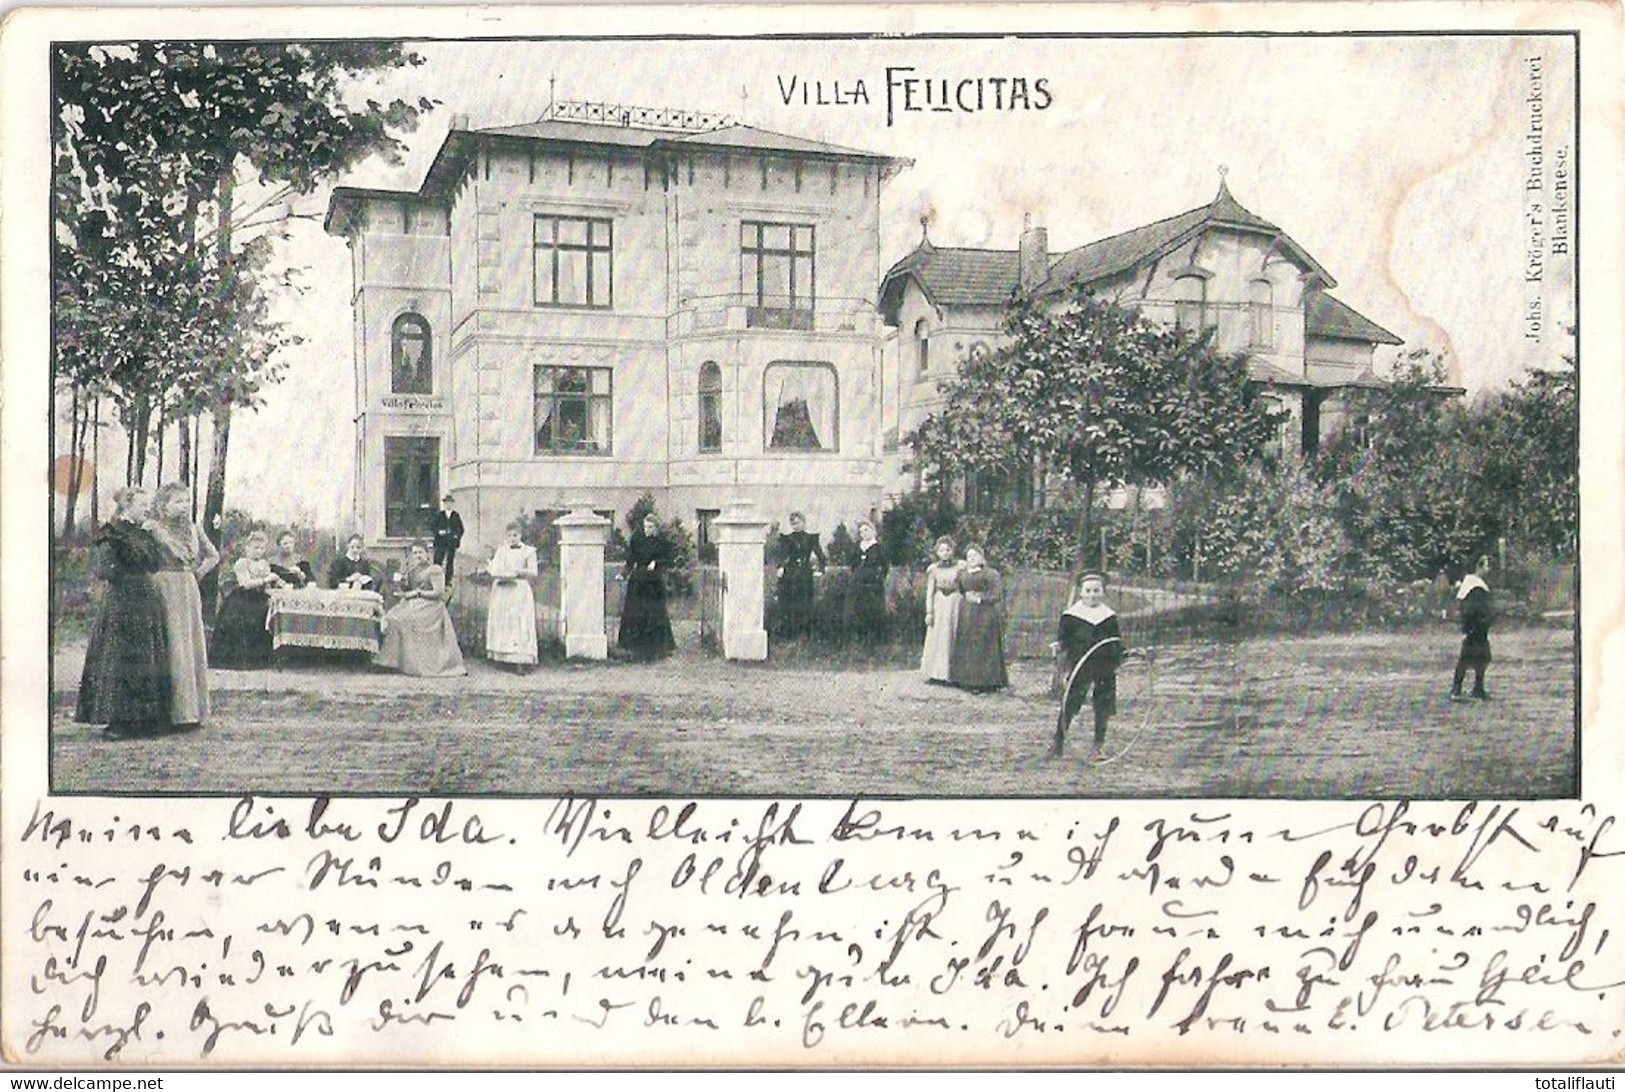 VILLA FELICITAS
Johs. Kröger's Buchdruckerei
Blankenese.
Villa Felicitas
Meine liebe Ida. Vielleicht komme ich zum Herbst auf
ein paar Stunden nach Oldenburg und werde Euch dann
besuchen, wenn es angenehm ist. Ich freue mich unendlich,
dich wiederzusehen, meine gute Ida. Ich fahre zu Frau
herzl. Gruß dir und den l. Eltern. Deine treue L. Petersen.
delcampe.net
totaliflauti